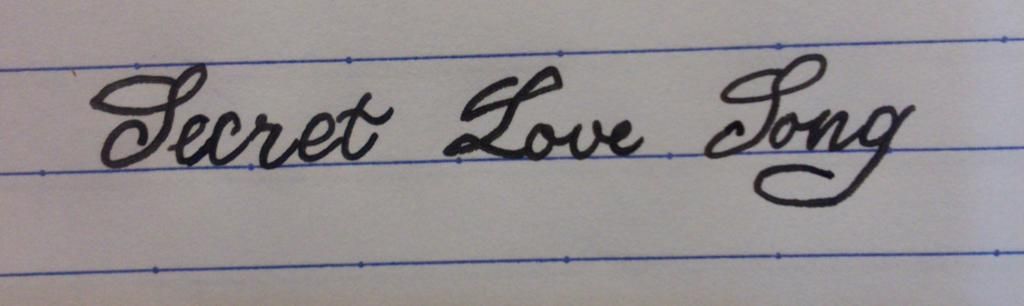 Secret Love Song